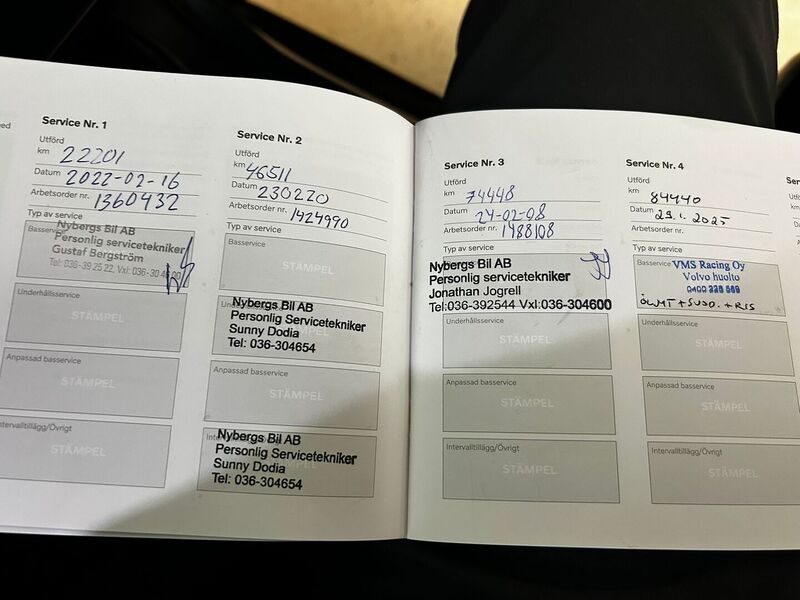 Service Nr. 1
Utförd
km 22201
Datum 2022-02-16
Arbetsorder nr. 1360432
Typ av service
Basservice
Nybergs Bil AB
Personlig servicetekniker
Gustaf Bergström
Tel: 036-39 25 22, Vxl: 036-30 46 00
Underhållsservice
STÄMPEL
Anpassad basservice
STÄMPEL
Intervalltillägg/Övrigt
STÄMPEL
Service Nr. 2
Utförd
km 46511
Datum 230220
Arbetsorder nr. 1424990
Typ av service
Basservice
STÄMPEL
Nybergs Bil AB
Personlig Servicetekniker
Sunny Dodia
Tel: 036-304654
Anpassad basservice
STÄMPEL
Nybergs Bil AB
Personlig Servicetekniker
Sunny Dodia
Tel: 036-304654
Service Nr. 3
Utförd
km 74448
Datum 24-02-08
Arbetsorder nr. 1488108
Typ av service
Nybergs Bil AB
Personlig servicetekniker
Jonathan Jogrell
Tel:036-392544 Vxl:036-304600
Underhållsservice
STÄMPEL
Anpassad basservice
STÄMPEL
Intervalltillägg/Övrigt
STÄMPEL
Service Nr. 4
Utförd
km 84440
Datum 29.1.2025
Arbetsorder nr.
Typ av service
Basservice
VMS Racing Oy
Volvo huolto
Underhållsservice
STÄMPEL
Anpassad basservice
STÄMPEL
Intervalltillägg/Övrigt
STÄMPEL